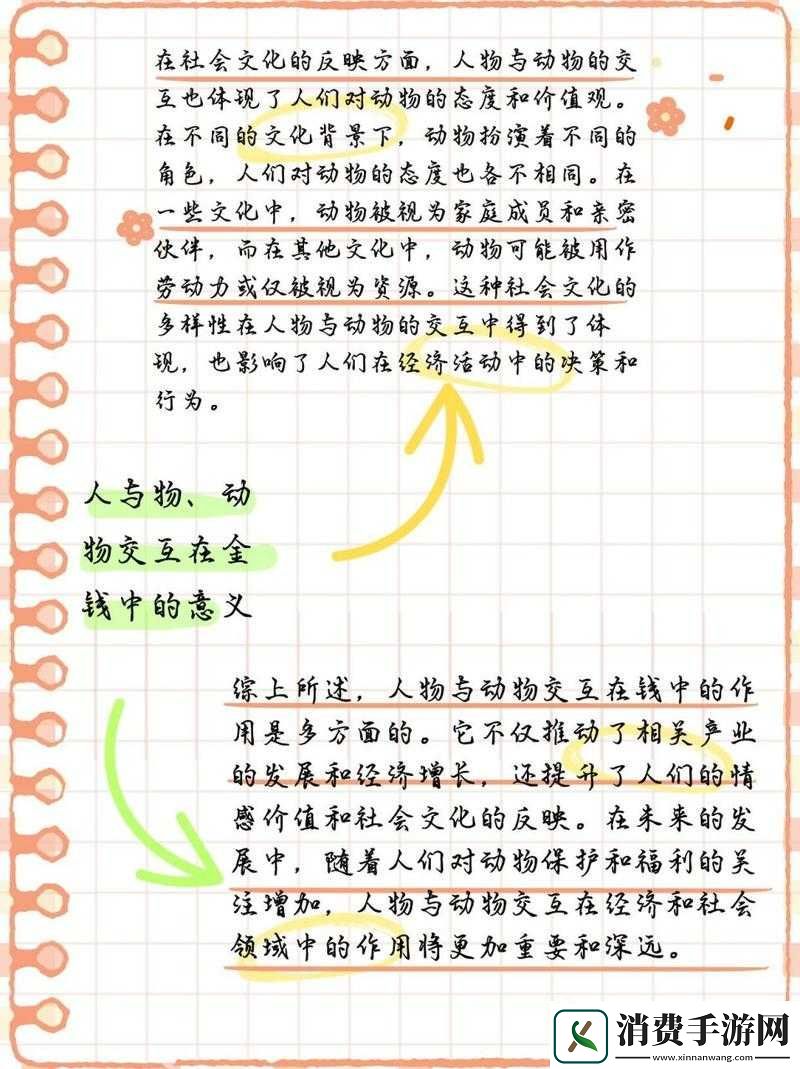 在社会文化的反映方面，人物与动物的交
互也体现了人们对动物的态度和价值观。
在不同的文化背景下，动物扮演着不同的
角色，人们对动物的态度也各不相同。在
一些文化中，动物被视为家庭成员和亲密
伙伴，而在其他文化中，动物可能被用作
劳动力或仅被视为资源。这种社会文化的
多样性在人物与动物的交互中得到了体
现，也影响了人们在经济活动中的决策和
行为。
人与物、动
物交互在金
钱中的意义
综上所述，人物与动物交互在钱中的作
用是多方面的。它不仅推动了相关产业
的发展和经济增长，还提升了人们的情
感价值和社会文化的反映。在未来的发
展中，随着人们对动物保护和福利的关
注增加，人物与动物交互在经济和社会
领域中的作用将更加重要和深远。
消费手游网
www.xinnanwang.com